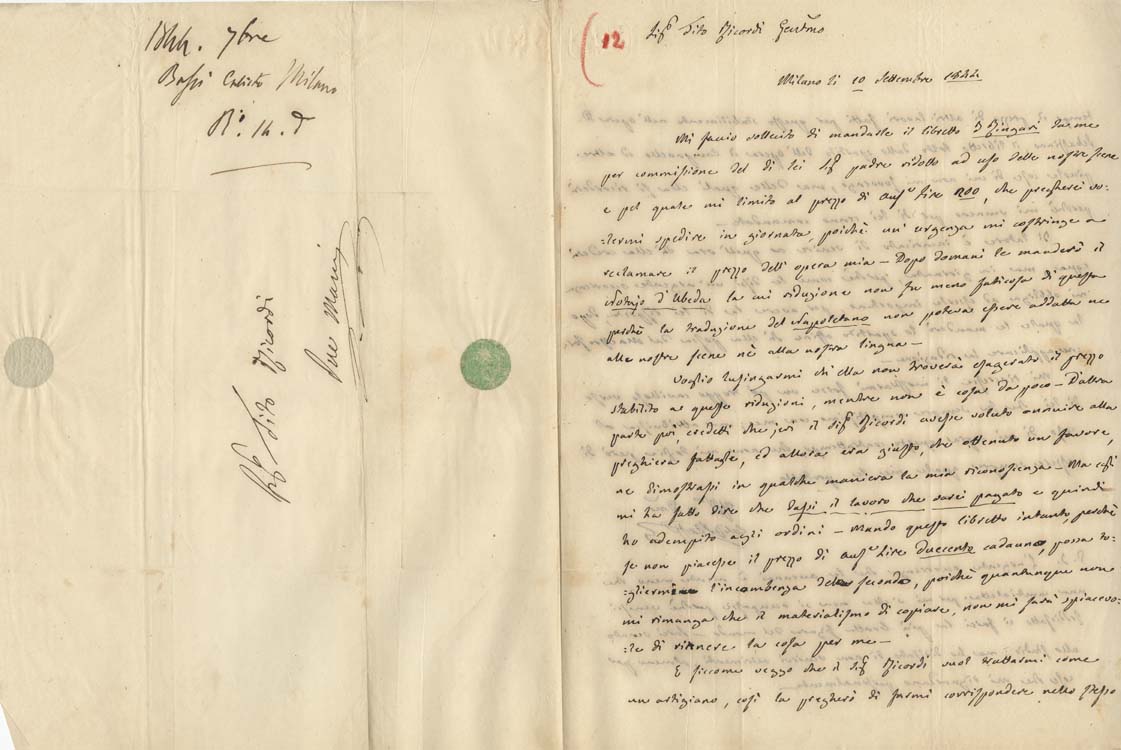 1844. 7bre
Bassi Calisto Milano
Ro. 14. d
Sigr. Tito Ricordi
Pre. Mani
12
Sigr. Tito Ricordi Gentmo
Milano li 10 Settembre 1844
Mi faccio sollecito di mandarle il libretto I Zingari da me
per commissione del di lei Sigr. padre ridotto ad uso delle nostre scene
e pel quale mi limito al prezzo di Ausce. Lire 200, che pregherei vo-
:lermi spedire in giornata, poichè un' urgenza mi costringe a
reclamare il prezzo dell' opera mia - Dopo domani le manderò il
Notajo d'Ubeda la cui riduzione non fu meno faticosa di questa
perchè la traduzione del Napoletano non poteva essere addatta ne
alle nostre scene nè alla nostra lingua -
Voglio lusingarmi ch' ella non troverà esagerato il prezzo
stabilito a queste riduzioni, mentre non è cosa da poco - D'altra
parte poi, credetti che jeri il Sigr. Ricordi avesse voluto annuire alla
preghiera fattagli, ed allora era giusto, che ottenuto un favore,
ne dimostrassi in qualche maniera la mia riconoscenza - Ma così
mi ha fatto dire che dassi il lavoro che sarei pagato e quindi
ho adempito agli ordini - Mando questo libretto intanto, perchè
se non piacesse il prezzo di Ausce. Lire duecento cadauno, possa to-
:gliermi l'incombenza del secondo, poichè quantunque non
mi rimanga che il materialismo di copiare, non mi sarà spiacevo-
:le di ritenere la cosa per me -
E siccome veggo che il Sigr. Ricordi vuol trattarmi come
un artigiano, così la pregherò di farmi corrispondere nello stesso